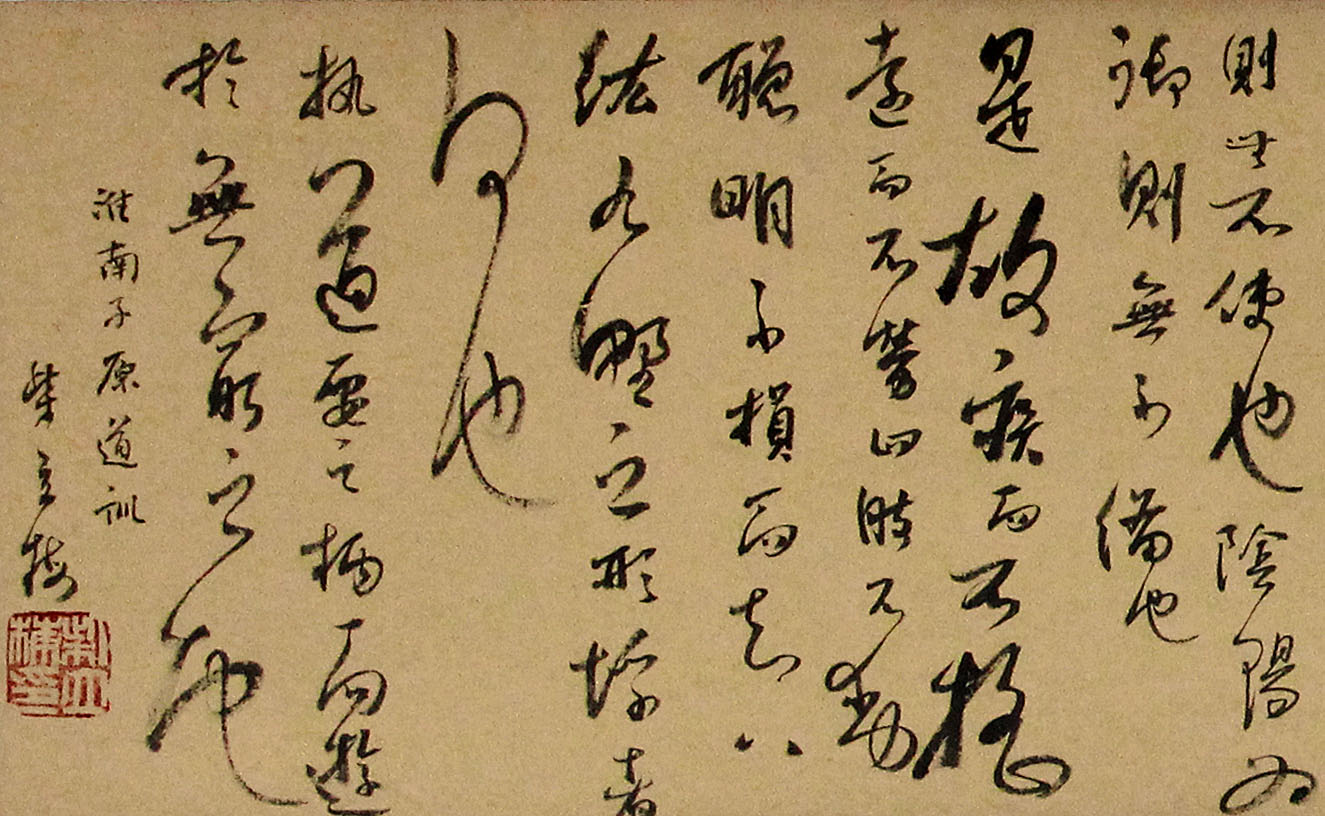 則無不使也陰陽為
御則無不備也
是故疾而不搖
遠而不勞四肢不動
聰明不損而知八
紘九野之形埒者
何也
執道要之柄而遊
於無窮之地
淮南子原道訓